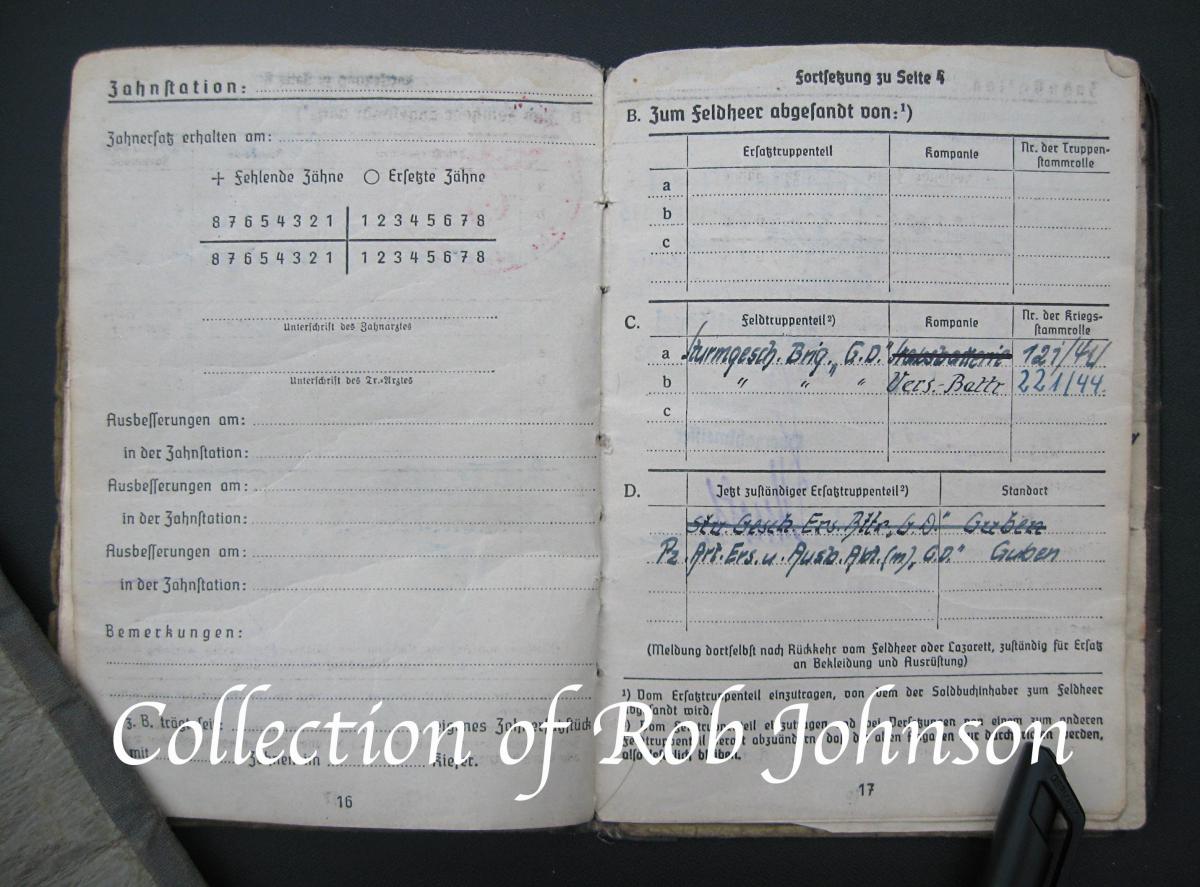 Zahnstation:
Zahnersatz erhalten am:
+ Fehlende Zähne ○ Ersetzte Zähne
8 7 6 5 4 3 2 1 | 1 2 3 4 5 6 7 8
8 7 6 5 4 3 2 1 | 1 2 3 4 5 6 7 8
Unterschrift des Zahnarztes
Unterschrift des Tr.-Arztes
Ausbesserungen am:
in der Zahnstation:
Ausbesserungen am:
in der Zahnstation:
Ausbesserungen am:
in der Zahnstation:
Bemerkungen:
z. B. trägt seit eigenes Zahnersatzstück
mit Zähnen im Kiefer.
16
Fortsetzung zu Seite 4
B. Zum Feldheer abgesandt von:¹)
Ersatztruppenteil Kompanie Nr. der Truppen-
stammrolle
a
b
c
C. Feldtruppenteil²) Kompanie Nr. der Kriegs-
stammrolle
a Sturmgesch. Brig. „G.D." Stabsbatterie 121/44
b " " " Vers.-Battr 221/44.
c
D. Jetzt zuständiger Ersatztruppenteil²) Standort
Stu Gesch. Ers. Bttr. „G.D." Guben
Pz. Art. Ers. u. Ausb. Abt. (m) „G.D." Guben
(Meldung dortselbst nach Rückkehr vom Feldheer oder Lazarett, zuständig für Ersatz
an Bekleidung und Ausrüstung)
¹) Vom Ersatztruppenteil einzutragen, von dem der Soldbuchinhaber zum Feldheer
abgesandt wird.
²) Vom Feldtruppenteil einzutragen und bei Versetzungen von einem zum anderen
Feldtruppenteil derart abzuändern, daß die alten Angaben nur durchstrichen werden,
also leserlich bleiben.
17
Collection of Rob Johnson